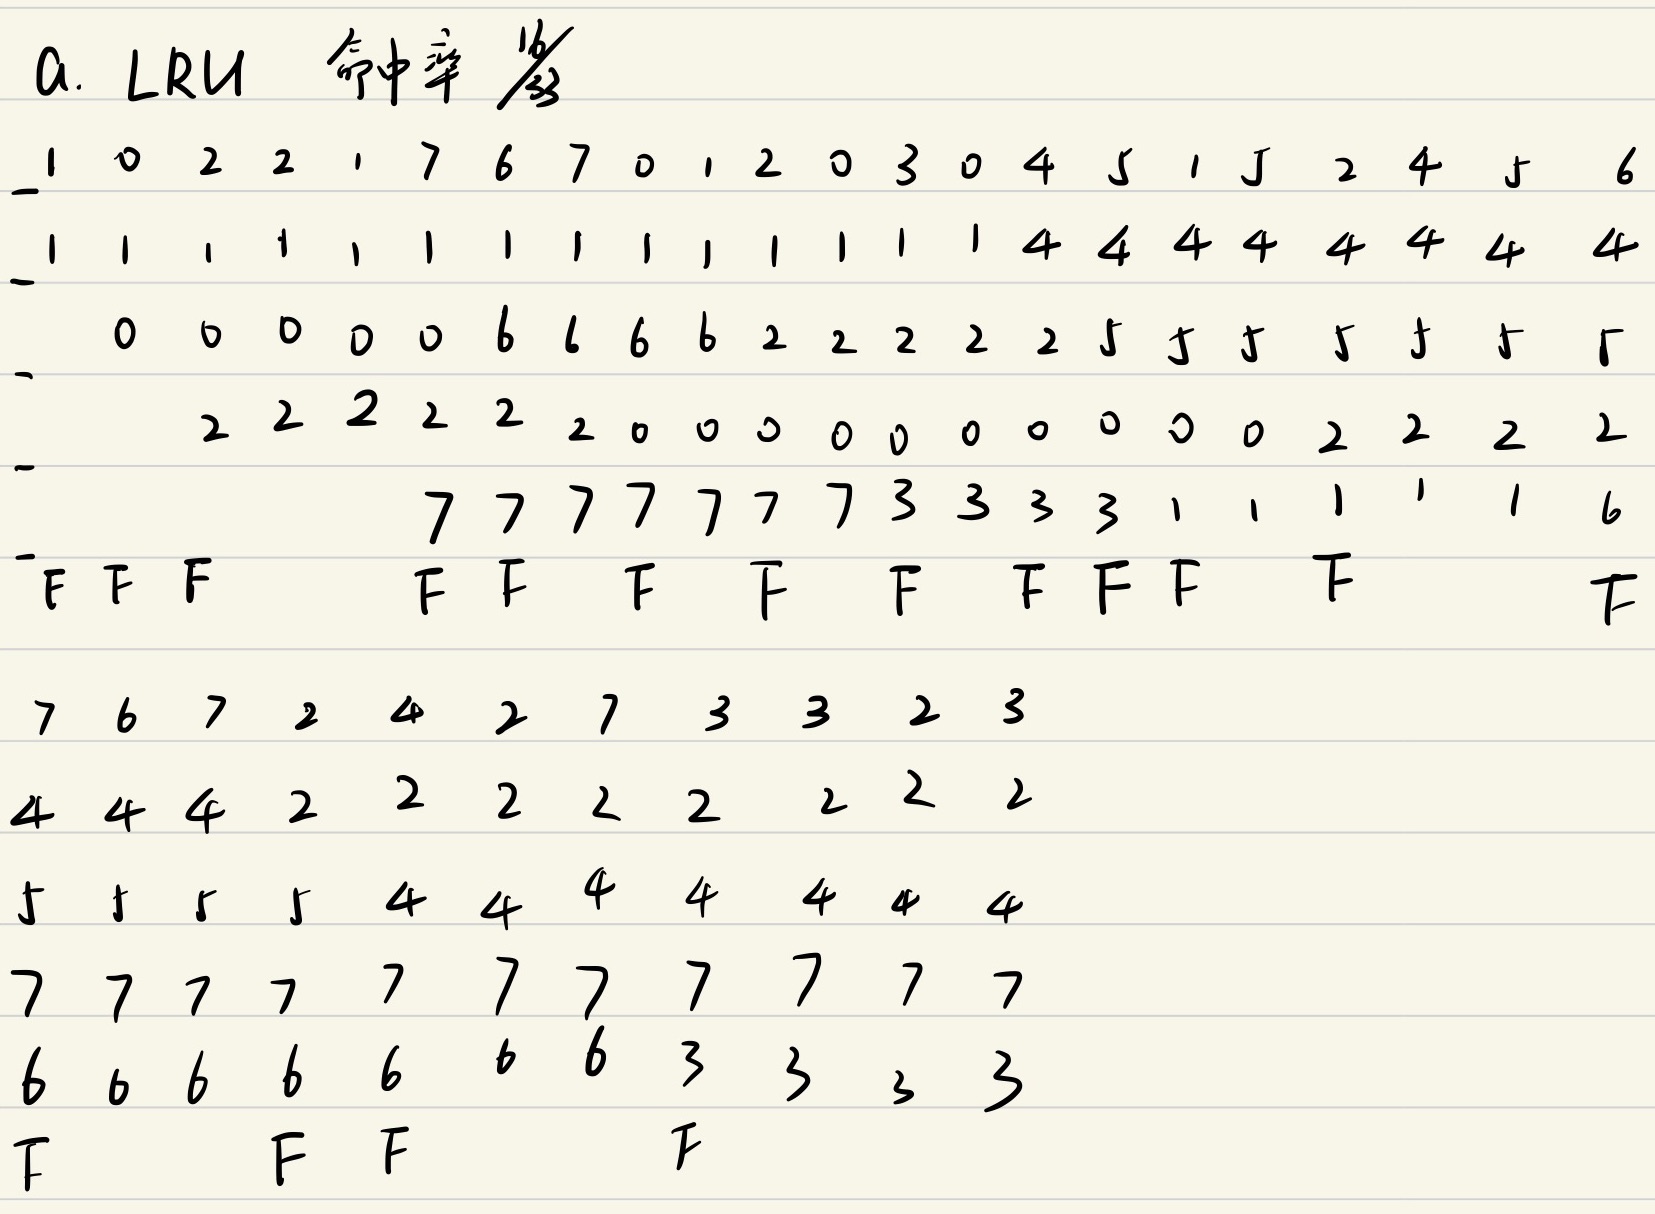 a. LRU 命中率 16/33
1 0 2 2 1 7 6 7 0 1 2 0 3 0 4 5 1 5 2 4 5 6
1 1 1 1 1 1 1 1 1 1 1 1 1 1 4 4 4 4 4 4 4 4
0 0 0 0 0 6 6 6 6 2 2 2 2 2 5 5 5 5 5 5 5
2 2 2 2 2 2 0 0 0 0 0 0 0 0 0 0 2 2 2 2
7 7 7 7 7 7 7 3 3 3 3 1 1 1 1 1 6
F F F F F F F F F F F F F
7 6 7 2 4 2 7 3 3 2 3
4 4 4 2 2 2 2 2 2 2 2
5 5 5 5 4 4 4 4 4 4 4
7 7 7 7 7 7 7 7 7 7 7
6 6 6 6 6 6 6 3 3 3 3
F F F F